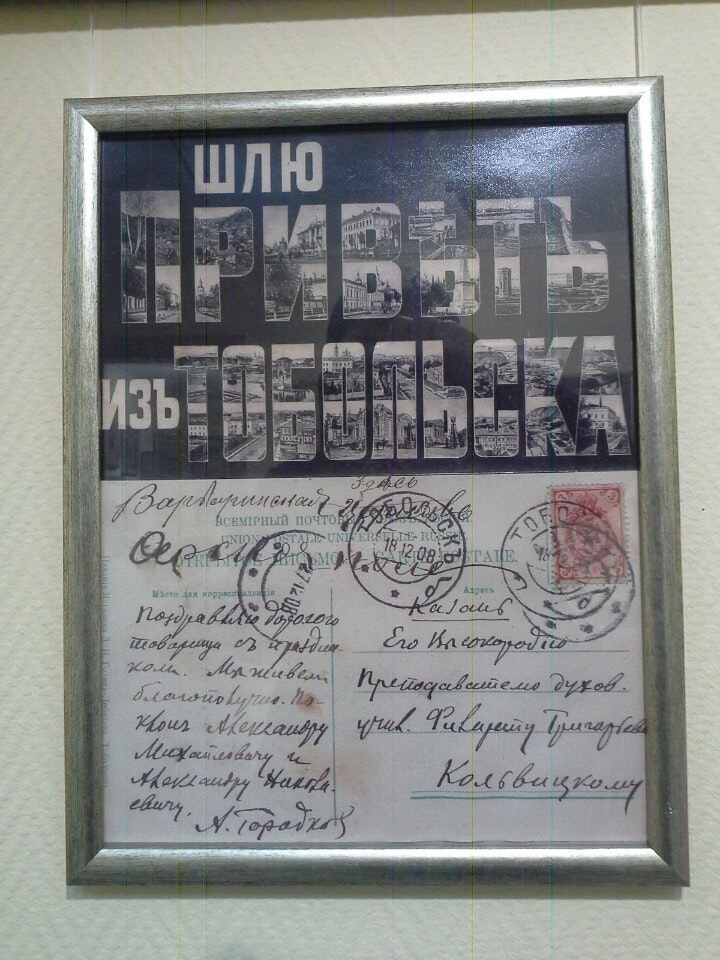 ШЛЮ
ПРИВѢТЪ
ИЗЪ ТОБОЛЬСКА
Здесь
Варваринская
ВСЕМІРНЫЙ ПОЧТОВЫЙ
UNION POSTALE UNIVERSELLE RUSSIE
ОТКРЫТОЕ ПИСЬМО
ТОБОЛЬСКЪ
18.12.08
Мѣсто для корреспонденціи
Адресъ
Поздравляю дорогого
товарища съ праздни
ком. Мы живем
благополучно. По
клонъ Александру
Михайловичу и
Александру Никола
евичу.
А. Городков
Казань
Его Высокородію
Преподавателю духов.
учил. Григорьев
Кольвицкому